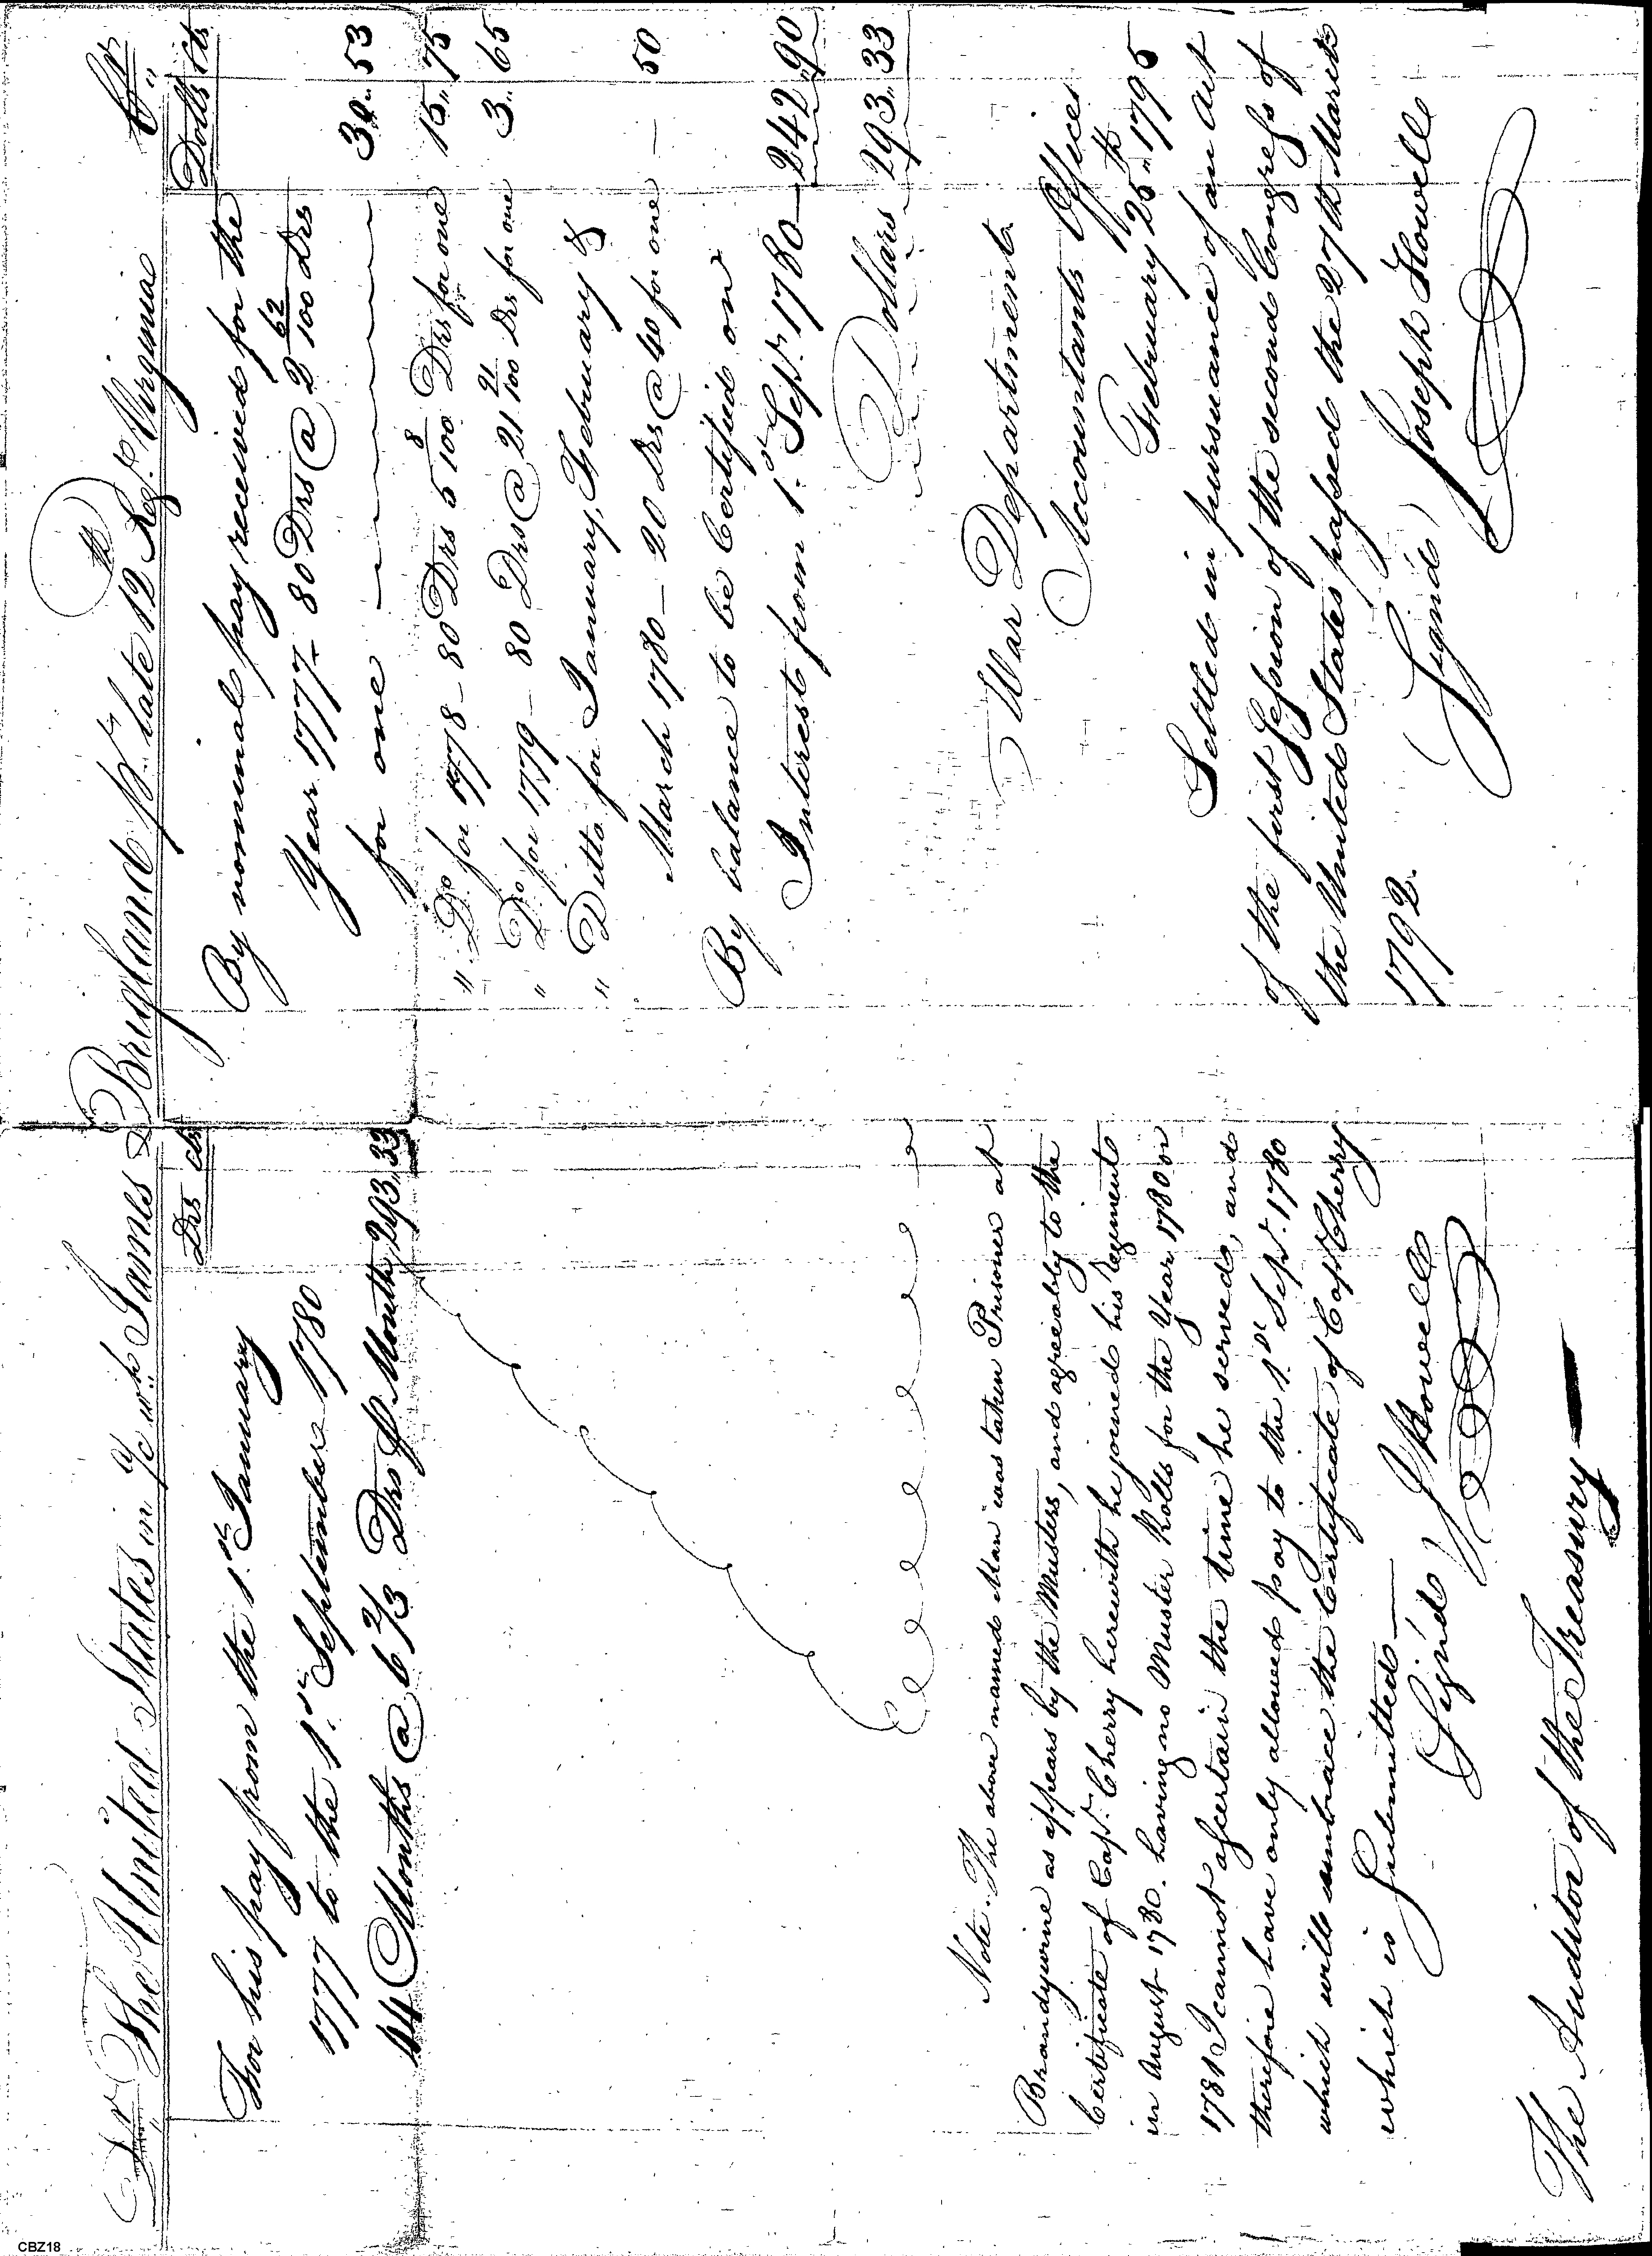 Dr The United States in a/c with James Brayland Pt. late 12th Regt. Virginia Cr
Drs cts
For his pay from the 1st January
1777 to the 1st September 1780
44 Months @ 6 2/3 Drs P Month 293,,33
Note. The above named Man was taken Prisoner at
Brandywine as appears by the Musters, and agreeably to the
Certificate of Capt. Cherry herewith he joined his regiment
in August 1780. having no Muster Rolls for the Year 1780 or
1781 I cannot ascertain the time he served, and
therefore have only allowed pay to the 1st Sept. 1780
which will embrace the Certificate of Capt Cherry
which is Submitted
Sign'd J Howell
The Auditor of the Treasury
Dolls cts
By nominal pay received for the
Year 1777 - 80 Drs @ 2 62/100 Drs
for one 30.. 53
" Do for 1778 - 80 Drs 5 8/100 Drs for one 15.. 75
" Do for 1779 - 80 Drs @ 21 91/100 Drs for one 3.. 65
" Ditto for January, February &
March 1780 - 20 Drs @ 40 for one - 50
By balance to be Certified on
Interest from 1st Sept. 1780 - 242,,90
Dollars 293,,33
War Department
Accountants Office
February 25th 1795
Settled in pursuance of an Act
of the first Session of the second Congress of
the United States passed the 27th March
1792.
(Signd) Joseph Howell
CBZ18